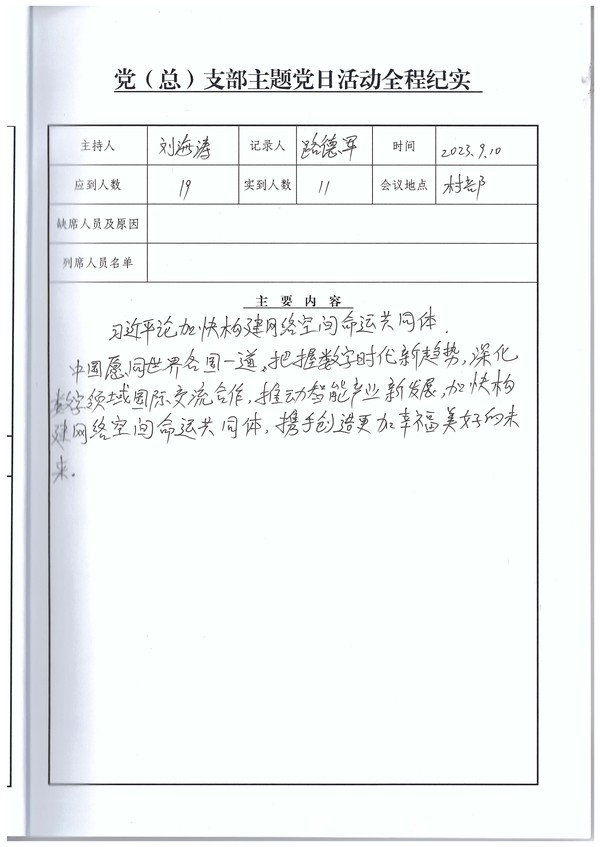 党（总）支部主题党日活动全程纪实
主持人 刘海涛 记录人 路德军 时间 2023.9.10
应到人数 19 实到人数 11 会议地点 村部
缺席人员及原因
列席人员名单
主要内容
习近平论加快构建网络空间命运共同体.
中国愿同世界各国一道，把握数字时代新趋势，深化
数字领域国际交流合作，推动智能产业新发展，加快构
建网络空间命运共同体，携手创造更加幸福美好的未
来。